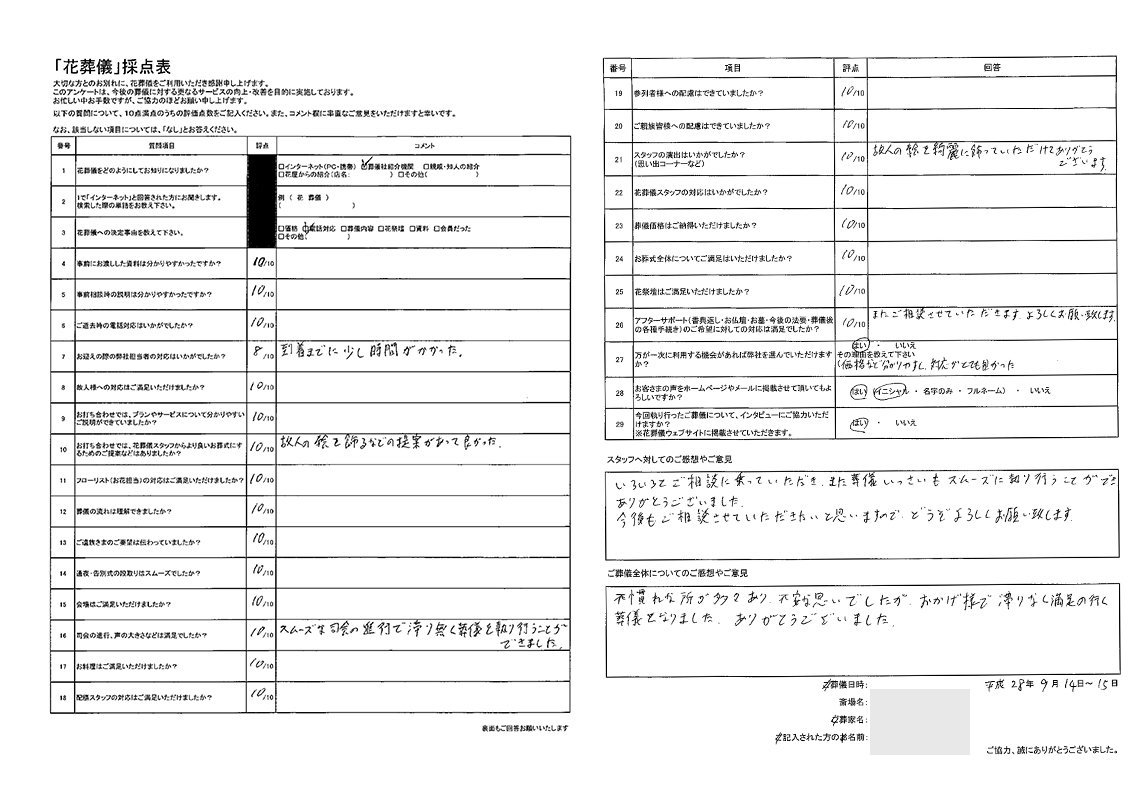 「花葬儀」採点表
大切な方とのお別れに、花葬儀をご利用いただき感謝申し上げます。
このアンケートは、今後の葬儀に対する更なるサービスの向上・改善を目的に実施しております。
お忙しい中お手数ですが、ご協力のほどお願い申し上げます。
以下の質問について、10点満点のうちの評価点数をご記入ください。また、コメント欄に率直なご意見をいただけますと幸いです。
なお、該当しない項目については、「なし」とお答えください。
番号 質問項目 評点 コメント
1 花葬儀をどのようにしてお知りになりましたか? □インターネット(PC・携帯) ☑葬儀社紹介機関 □親戚・知人の紹介
□花屋からの紹介(店名: ) □その他( )
2 1で「インターネット」と回答された方にお聞きします。 例 ( 花 葬儀 )
検索した際の単語をお教え下さい。 ( )
3 花葬儀への決定事由を教えて下さい。 □価格 ☑電話対応 □葬儀内容 □花祭壇 □資料 □会員だった
□その他( )
4 事前にお渡しした資料は分かりやすかったですか? 10/10
5 事前相談時の説明は分かりやすかったですか? 10/10
6 ご逝去時の電話対応はいかがでしたか? 10/10
7 お迎えの際の弊社担当者の対応はいかがでしたか? 8/10 到着までに少し時間がかかった。
8 故人様への対応はご満足いただけましたか? 10/10
9 お打ち合わせでは、プランやサービスについて分かりやすい 10/10
ご説明ができていましたか?
10 お打ち合わせでは、花葬儀スタッフからより良いお葬式にす 10/10 故人の絵を飾るなどの提案があって良かった。
るためのご提案などはありましたか?
11 フローリスト(お花担当)の対応はご満足いただけましたか? 10/10
12 葬儀の流れは理解できましたか? 10/10
13 ご遺族さまのご要望は伝わっていましたか? 10/10
14 通夜・告別式の段取りはスムーズでしたか? 10/10
15 会場はご満足いただけましたか? 10/10
16 司会の進行、声の大きさなどは満足でしたか? 10/10 スムーズな司会の進行で滞り無く葬儀を執り行うことが
できました。
17 お料理はご満足いただけましたか? 10/10
18 配膳スタッフの対応はご満足いただけましたか? 10/10
裏面もご回答お願いいたします
番号 項目 評点 回答
19 参列者様への配慮はできていましたか? 10/10
20 ご親族皆様への配慮はできていましたか? 10/10
21 スタッフの演出はいかがでしたか? 10/10 故人の絵を綺麗に飾っていただけてありがとう
(思い出コーナーなど) ございます
22 花葬儀スタッフの対応はいかがでしたか? 10/10
23 葬儀価格はご納得いただけましたか? 10/10
24 お葬式全体についてご満足はいただけましたか? 10/10
25 花祭壇はご満足いただけましたか? 10/10
26 アフターサポート(香典返し・お仏壇・お墓・今後の法要・葬儀後 10/10 またご相談させていただきます。よろしくお願い致します
の各種手続き)のご希望に対しての対応は満足でしたか?
27 万が一次に利用する機会があれば弊社を選んでいただけます はい ・ いいえ
か? その理由を教えて下さい
(価格など分かりやすし、対応がとても良かった
28 お客さまの声をホームページやメールに掲載させて頂いてもよ はい (イニシャル ・ 名字のみ ・ フルネーム) ・ いいえ
ろしいですか?
29 今回執り行ったご葬儀について、インタビューにご協力いただ はい ・ いいえ
けますか?
※花葬儀ウェブサイトに掲載させていただきます。
スタッフへ対してのご感想やご意見
いろいろとご相談に乗っていただき、また葬儀いっさいもスムーズに執り行うことができ
ありがとうございました。
今後もご相談させていただきたいと思いますので、どうぞよろしくお願い致します。
ご葬儀全体についてのご感想やご意見
不慣れな所が多々あり、不安な思いでしたが、おかげ様で滞りなく満足の行く
葬儀となりました。ありがとうございました。
ご葬儀日時: 平成28年9月14日~15日
斎場名:
ご葬家名:
ご記入された方のお名前:
ご協力、誠にありがとうございました。